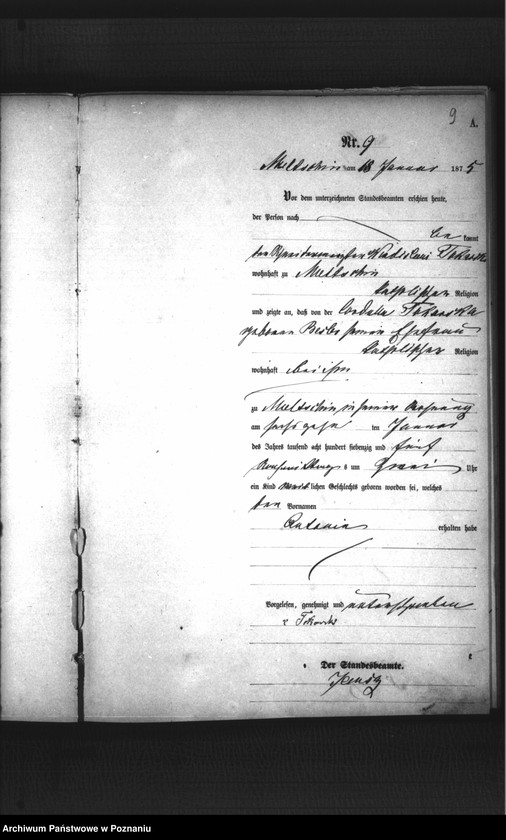 9
A.
Nr. 9
am 18 Januar 1875
Vor dem unterzeichneten Standesbeamten erschien heute,
der Person nach
be kannt
der Schneidermeister Tokarski
wohnhaft zu
katholischer Religion
und zeigte an, daß von der Tokarska
geborenen seiner Ehefrau
katholischer Religion
wohnhaft bei ihm
zu in seiner Wohnung
am sechszehn ten Januar
des Jahres tausend acht hundert siebenzig und fünf
Nachmittags um zwei Uhr
ein Kind weib lichen Geschlechts geboren worden sei, welches
den Vornamen
Antonia erhalten habe
Vorgelesen, genehmigt und unterschrieben
Tokarski
Der Standesbeamte.
Archiwum Państwowe w Poznaniu